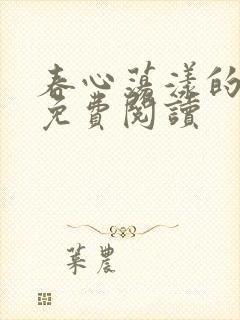 春心蕩漾的
免費閱讀
葉農